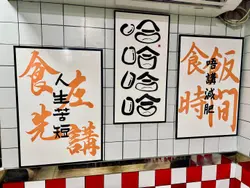 人生苦短
食左先講
哈哈哈哈
食飯時間
唔講減肥